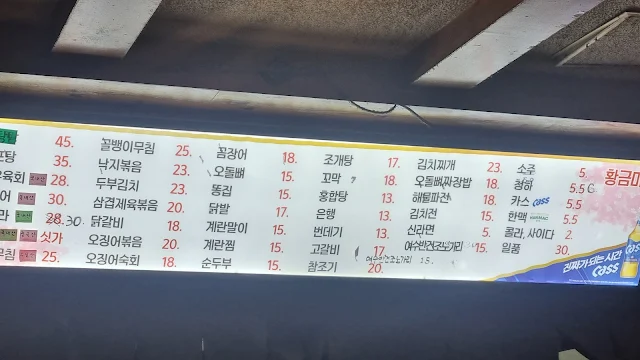 45. 골뱅이무침 25. 꼼장어 18. 조개탕 17. 김치찌개 23. 소주 5.
35. 낙지볶음 23. 오돌뼈 15. 꼬막 18. 오돌뼈짜장밥 18. 청하 5.5
육회 28. 두부김치 23. 똥집 15. 홍합탕 13. 해물파전 18. 카스 Cass 5.5
30. 삼겹제육볶음 20. 닭발 17. 은행 13. 김치전 15. 한맥 5.5
28.30 닭갈비 18. 계란말이 15. 번데기 13. 신라면 5. 콜라, 사이다 2.
싯가 오징어볶음 20. 계란찜 15. 고갈비 17. 여수반건조노가리 15. 일품 30.
25. 오징어숙회 18. 순두부 15. 참조기 20. 15.
황금
진짜가 되는 시간
Cass